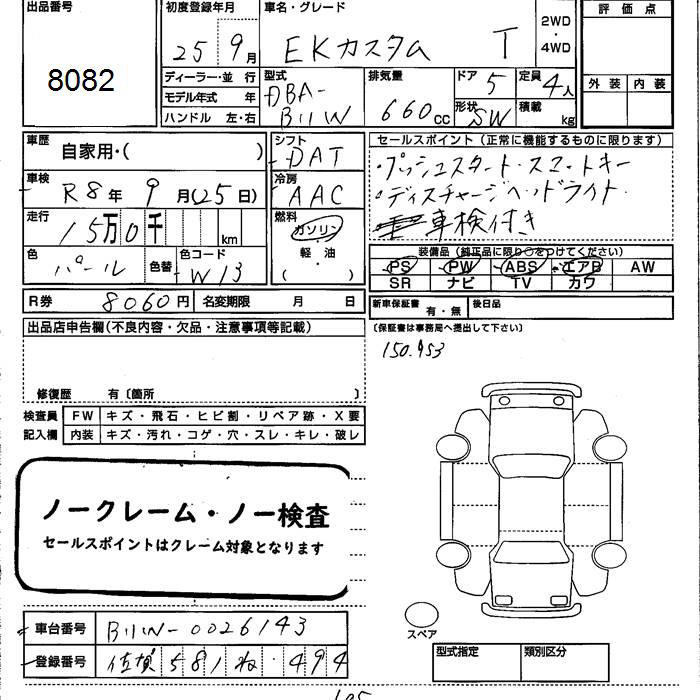 出品番号 初度登録年月 車名・グレード 評価点
8082 25 9月 EKカスタム T 2WD・4WD
ディーラー・並行 型式 排気量 ドア 定員 外装 内装
モデル年式 年 DBA- 5 4人
ハンドル 左・右 B11W 660cc 形状 SW 積載 kg
車歴 自家用・( ) シフト DAT セールスポイント(正常に機能するものに限ります)
車検 R8年 9月(25日) 冷房 AAC ・プッシュスタート・スマートキー
・ディスチャージヘッドライト・
走行 15万0千 km 燃料 ガソリン ・車検付き
軽・油
( )
色 パール 色替 色コード W13 装備品(純正品に限り○をつけてください)
PS PW ABS エアB AW
SR ナビ TV カワ
R券 8060円 名変期限 月 日 新車保証書 有・無 後日品
出品店申告欄(不良内容・欠品・注意事項等記載) (保証書は事務局へ提出して下さい)
150.953
修復歴 有〔箇所 〕
検査員 FW キズ・飛石・ヒビ割・リペア跡・X要
記入欄 内装 キズ・汚れ・コゲ・穴・スレ・キレ・破レ
ノークレーム・ノー検査
セールスポイントはクレーム対象となります
車台番号 B11W-0026143
スペア
登録番号 佐賀 581 ね・494
型式指定 類別区分